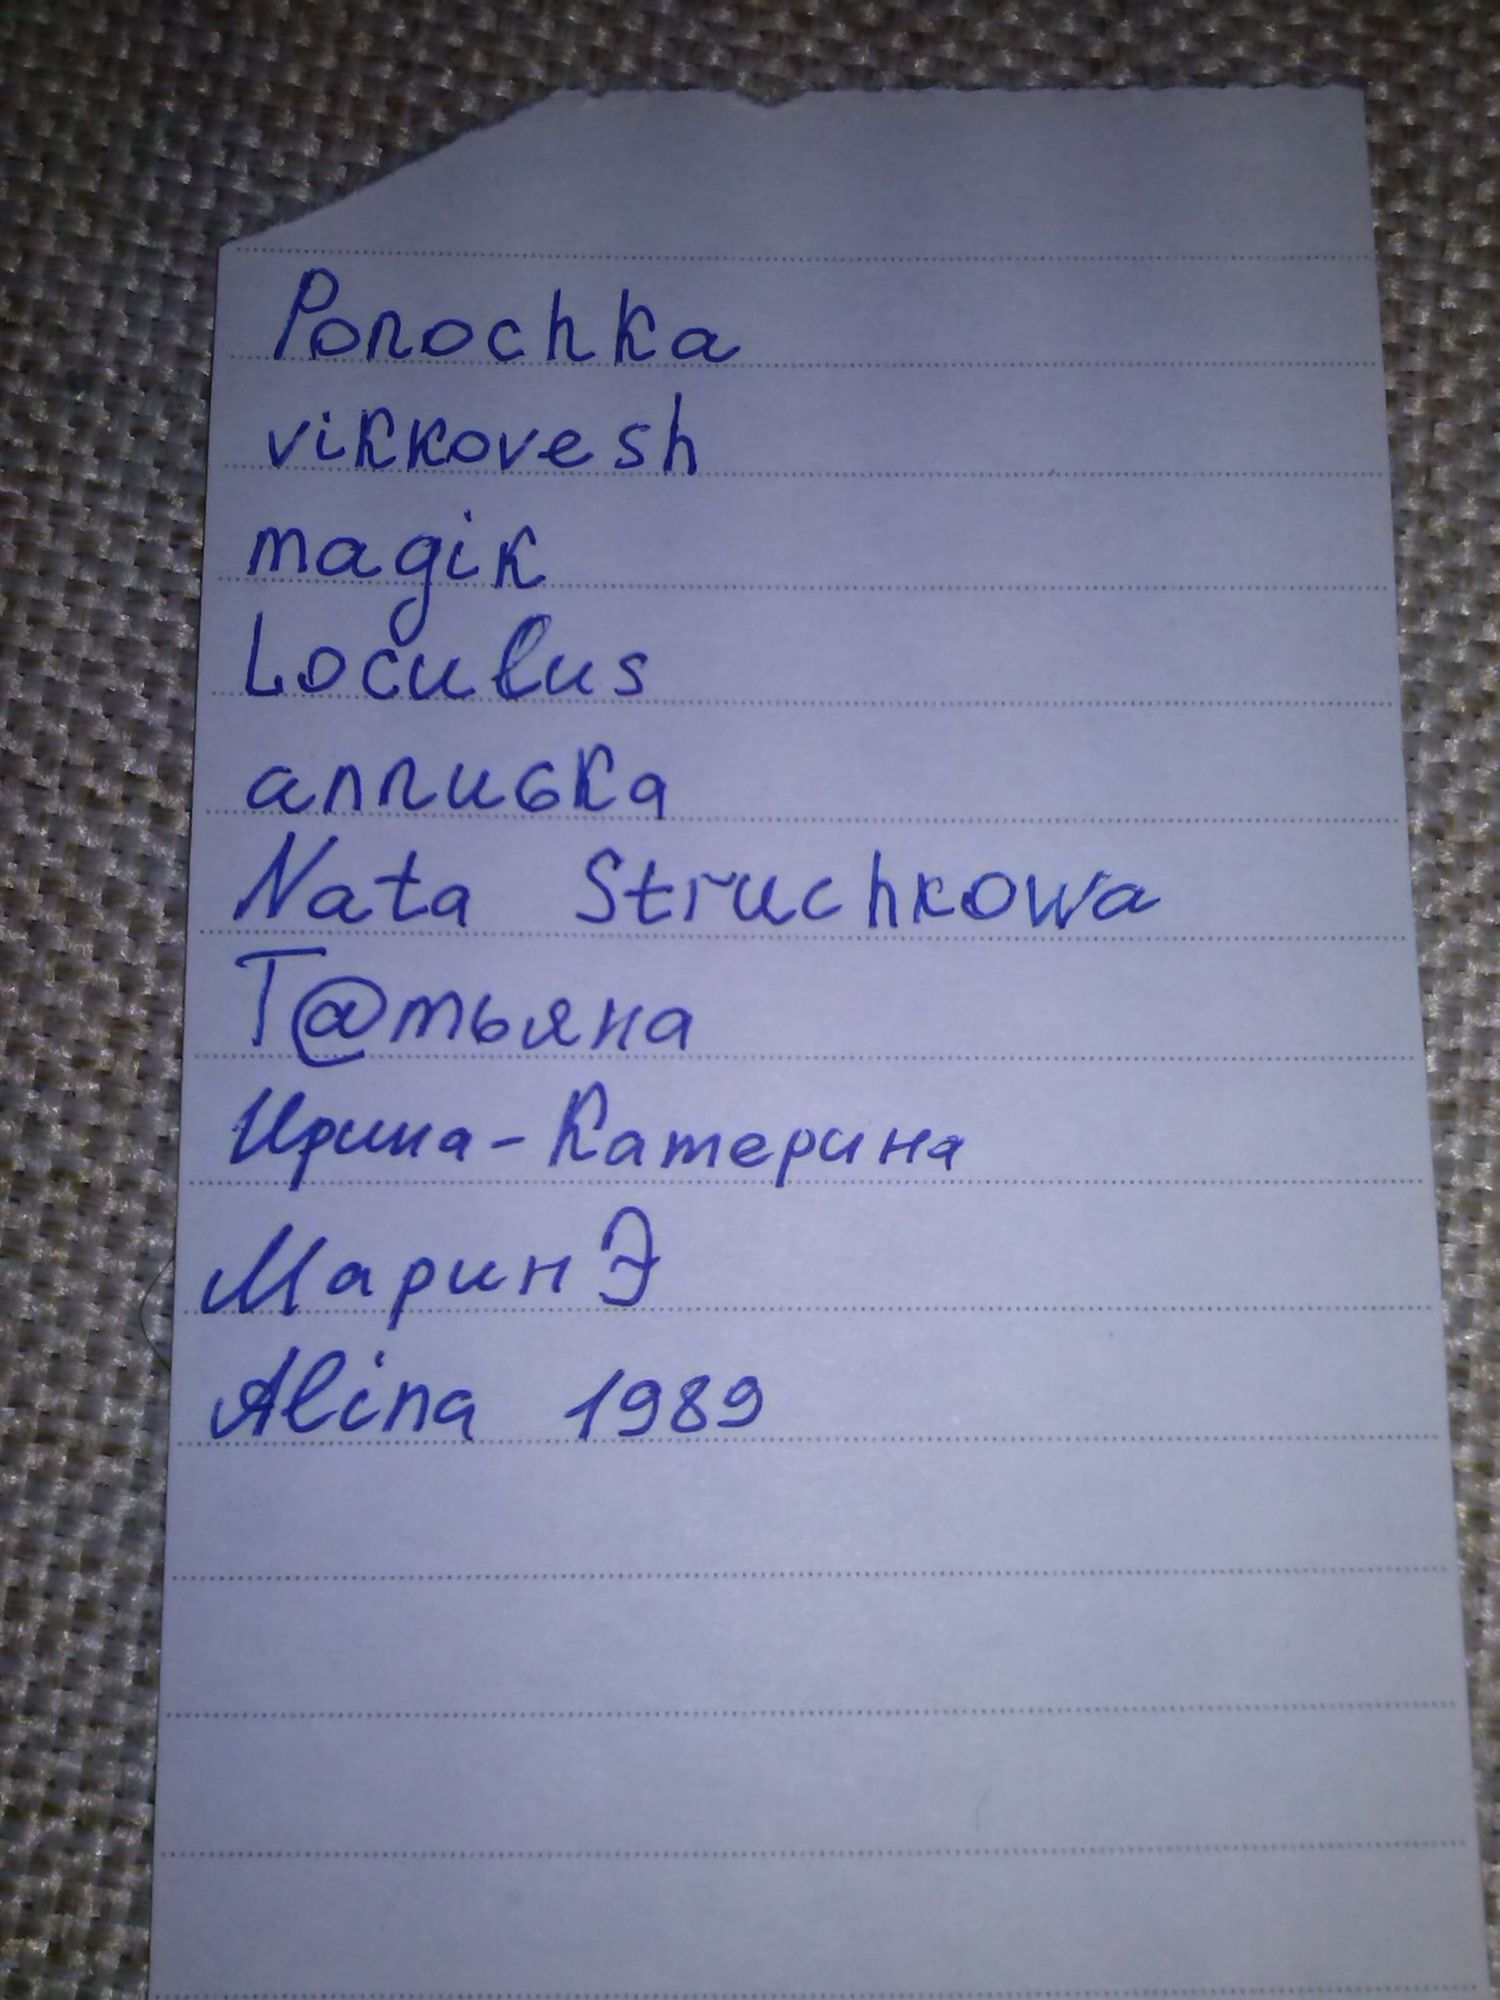 Ponochka
vikkovesh
magik
Loculus
Nata Struchkowa
Т@тьяна
Ирина-Катерина
МаринЭ
Alina 1989